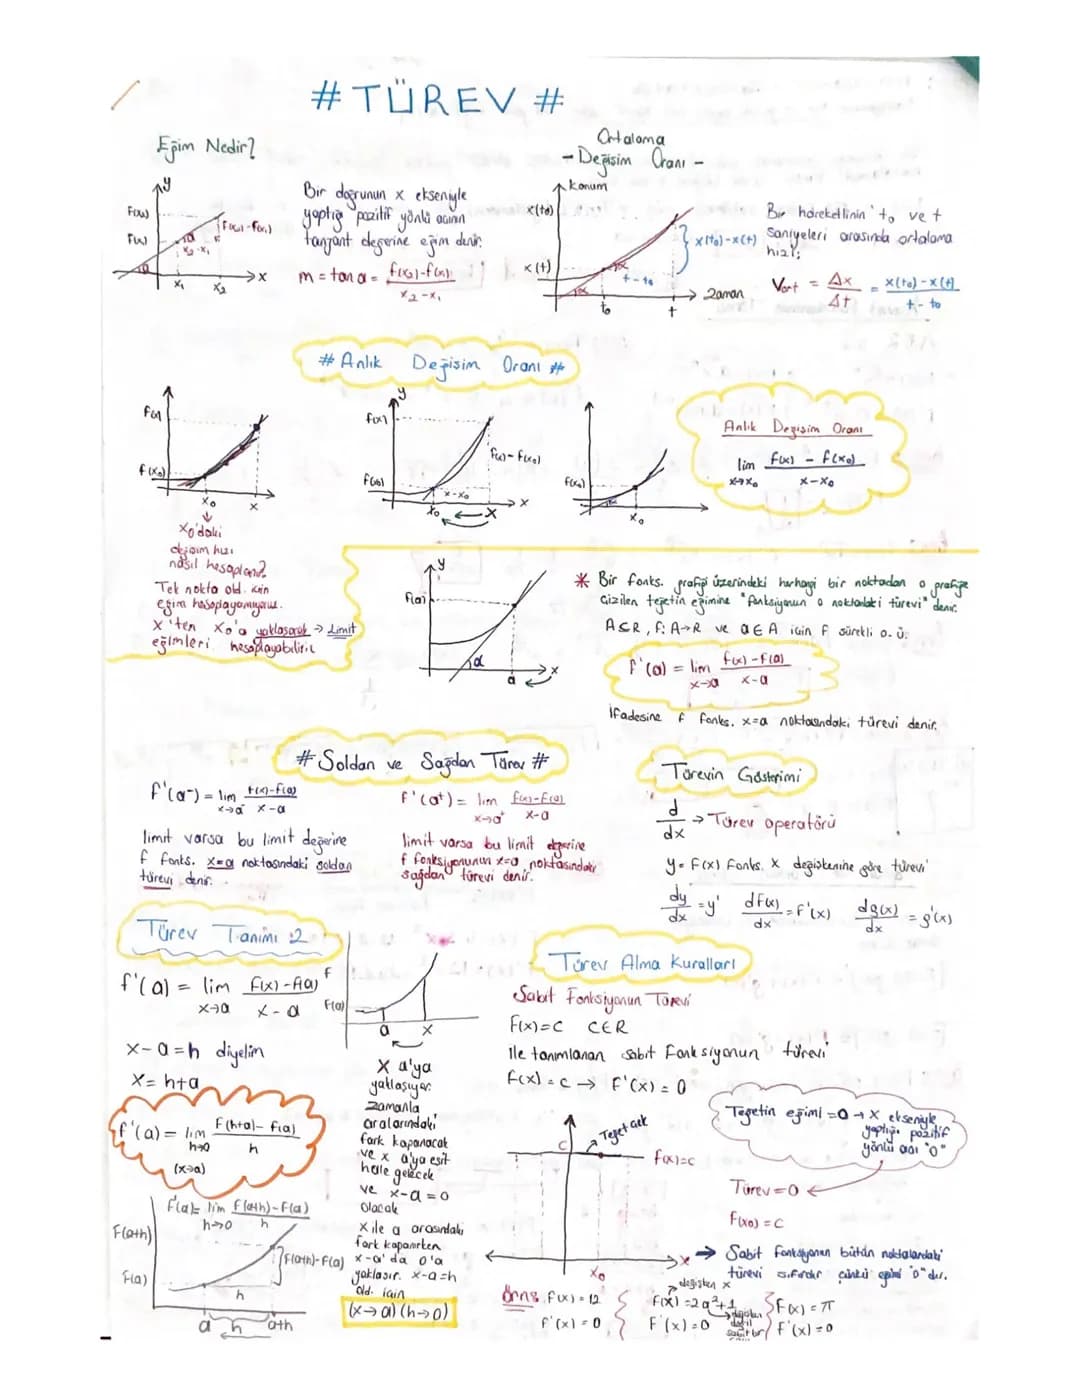 # TÜREV #
Eğim Nedir?
y
F(x₂)
F(x₁)
F(x₂)-F(x₁)
α
x₂-x₁
α
x₁
x₂
x
Bir doğrunun x ekseniyle
yaptığı pozitif yönlü açının
tanjant değerine eğim denir.
m = tan α = f(x₂)-f(x₁) / x₂-x₁
Ortalama
- Değişim Oranı -
konum
x(t₀)
x(t)
x(t₀)-x(t)
α
t-t₀
α
t₀
t
Zaman
Bir hareketlinin t₀ ve t
Saniyeleri arasında ortalama
hızı;
Vort = Δx / Δt = x(t₀)-x(t) / t-t₀
# Anlık Değişim Oranı #
F(x)
f(x₀)
x₀
x
x₀'daki
değişim hızı
nasıl hesaplanır?
Tek nokta old. için
eğim hesaplayamıyoruz.
x'ten x₀'a yaklaşarak → Limit
eğimleri hesaplayabiliriz
y
f(x)
F(x₀)
F(x)-F(x₀)
x-x₀
x₀
x
x
F(x₀)
α
x₀
Anlık Değişim Oranı
lim f(x) - f(x₀) / x-x₀
x→x₀
y
F(a)
α
a
x
* Bir fonks. grafiği üzerindeki herhangi bir noktadan o grafiğe
Çizilen teğetin eğimine "fonksiyonun o noktadaki türevi" denir.
A⊆R, f: A→R ve a∈A için f sürekli o.ü.
f'(a) = lim f(x)-f(a) / x-a
x→a
ifadesine f fonks. x=a noktasındaki türevi denir.
# Soldan ve Sağdan Türev #
f'(a⁻) = lim f(x)-f(a) / x-a
x→a⁻
limit varsa bu limit değerine
f fonks. x=a noktasındaki soldan
türevi denir.
f'(a⁺) = lim f(x)-f(a) / x-a
x→a⁺
limit varsa bu limit değerine
f fonksiyonunun x=a noktasındaki
sağdan türevi denir.
Türevin Gösterimi
d/dx → Türev operatörü
y = F(x) Fonks. x değişkenine göre türevi
dy/dx = y' dF(x)/dx = F'(x) dg(x)/dx = g'(x)
Türev Tanımı 2
f'(a) = lim F(x)-F(a) / x-a
x→a
x-a = h diyelim
x = h+a
f'(a) = lim F(h+a)-F(a) / h
h→0
(x→a)
f'(a) = lim F(a+h)-F(a) / h
h→0
F(a+h)
F(a)
F(a+h)-F(a)
h
a
h
a+h
F
F(a)
a
x
x a'ya
yaklaşıyor
zamanla
aralarındaki
fark kapanacak
ve x a'ya eşit
hale gelecek
ve x-a=0
olacak
x ile a arasındaki
fark kapanırken
x-a' da 0'a
yaklaşır. x-a=h
old. için
(x→a) (h→0)
Türev Alma Kuralları
Sabit Fonksiyonun Türevi
F(x)=C C∈R
ile tanımlanan sabit fonksiyonun türevi
F(x) = c → F'(x) = 0
Teğetin eğimi =0 → x ekseniyle
yaptığı pozitif
yönlü açı "0"
C
Teğet
F(x)=C
x₀
x
Türev=0
F(x₀) = C
→ Sabit Fonksiyonun bütün noktalardaki
türevi sıfırdır çünkü eğimi "0" dır.
Örns. F(x) = 12
F'(x) = 0
değişken x
F(x) = 2a²+1
F'(x) = 0
değişken
değil
sabit bir
F(x) = π
F'(x) = 0